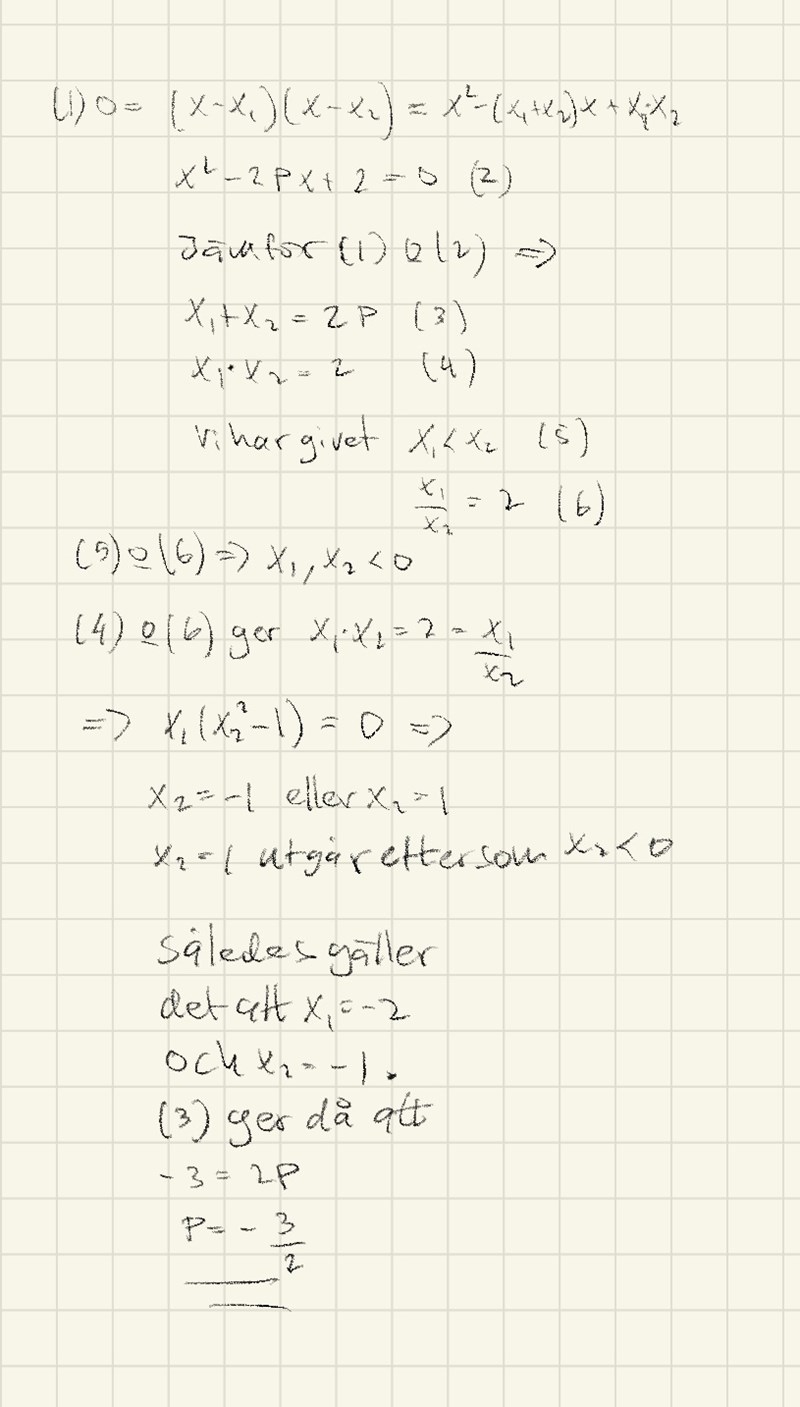 (1) 0 = (x-x₁)(x-x₂) = x²-(x₁+x₂)x+x₁·x₂
x²-2px+2=0 (2)
Jämför (1) o (2) ⇒
x₁+x₂ = 2p (3)
x₁·x₂ = 2 (4)
Vi har givet x₁<x₂ (5)
x₁/x₂ = 2 (6)
(5) o (6) ⇒ x₁, x₂ < 0
(4) o (6) ger x₁·x₂ = 2 = x₁/x₂
⇒ x₁(x₂²-1) = 0 ⇒
x₂ = -1 eller x₂ = 1
x₂ = 1 utgår eftersom x₂ < 0
Således gäller
det att x₁ = -2
och x₂ = -1.
(3) ger då att
-3 = 2p
p = -3/2